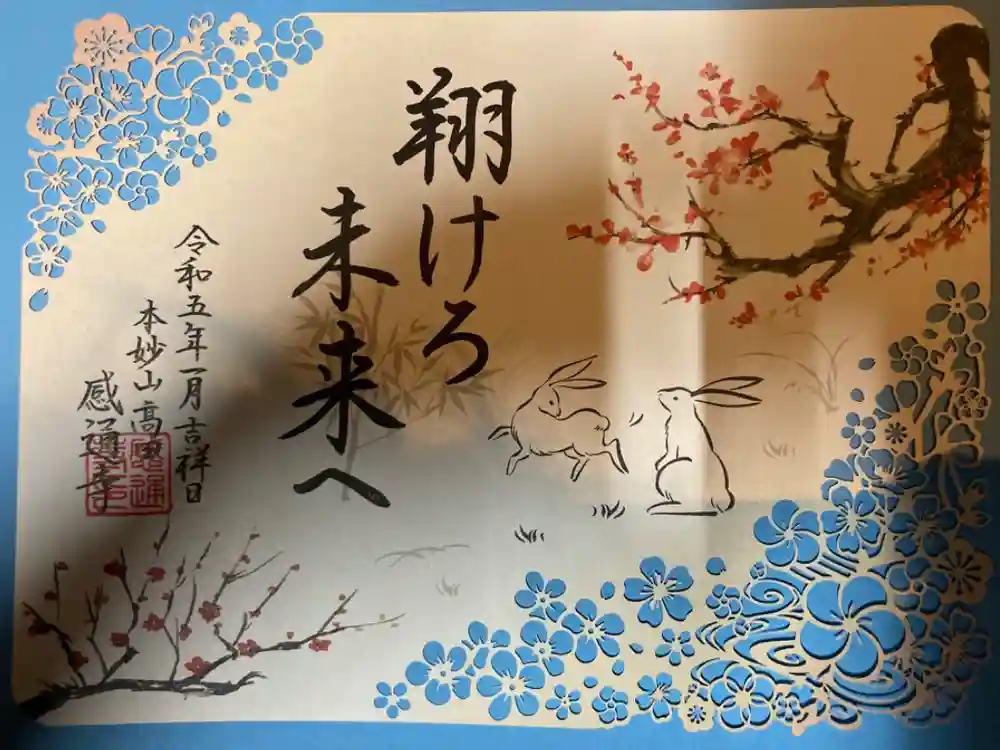 翔けろ
未来へ
令和五年一月吉祥日
本妙山高
感通寺